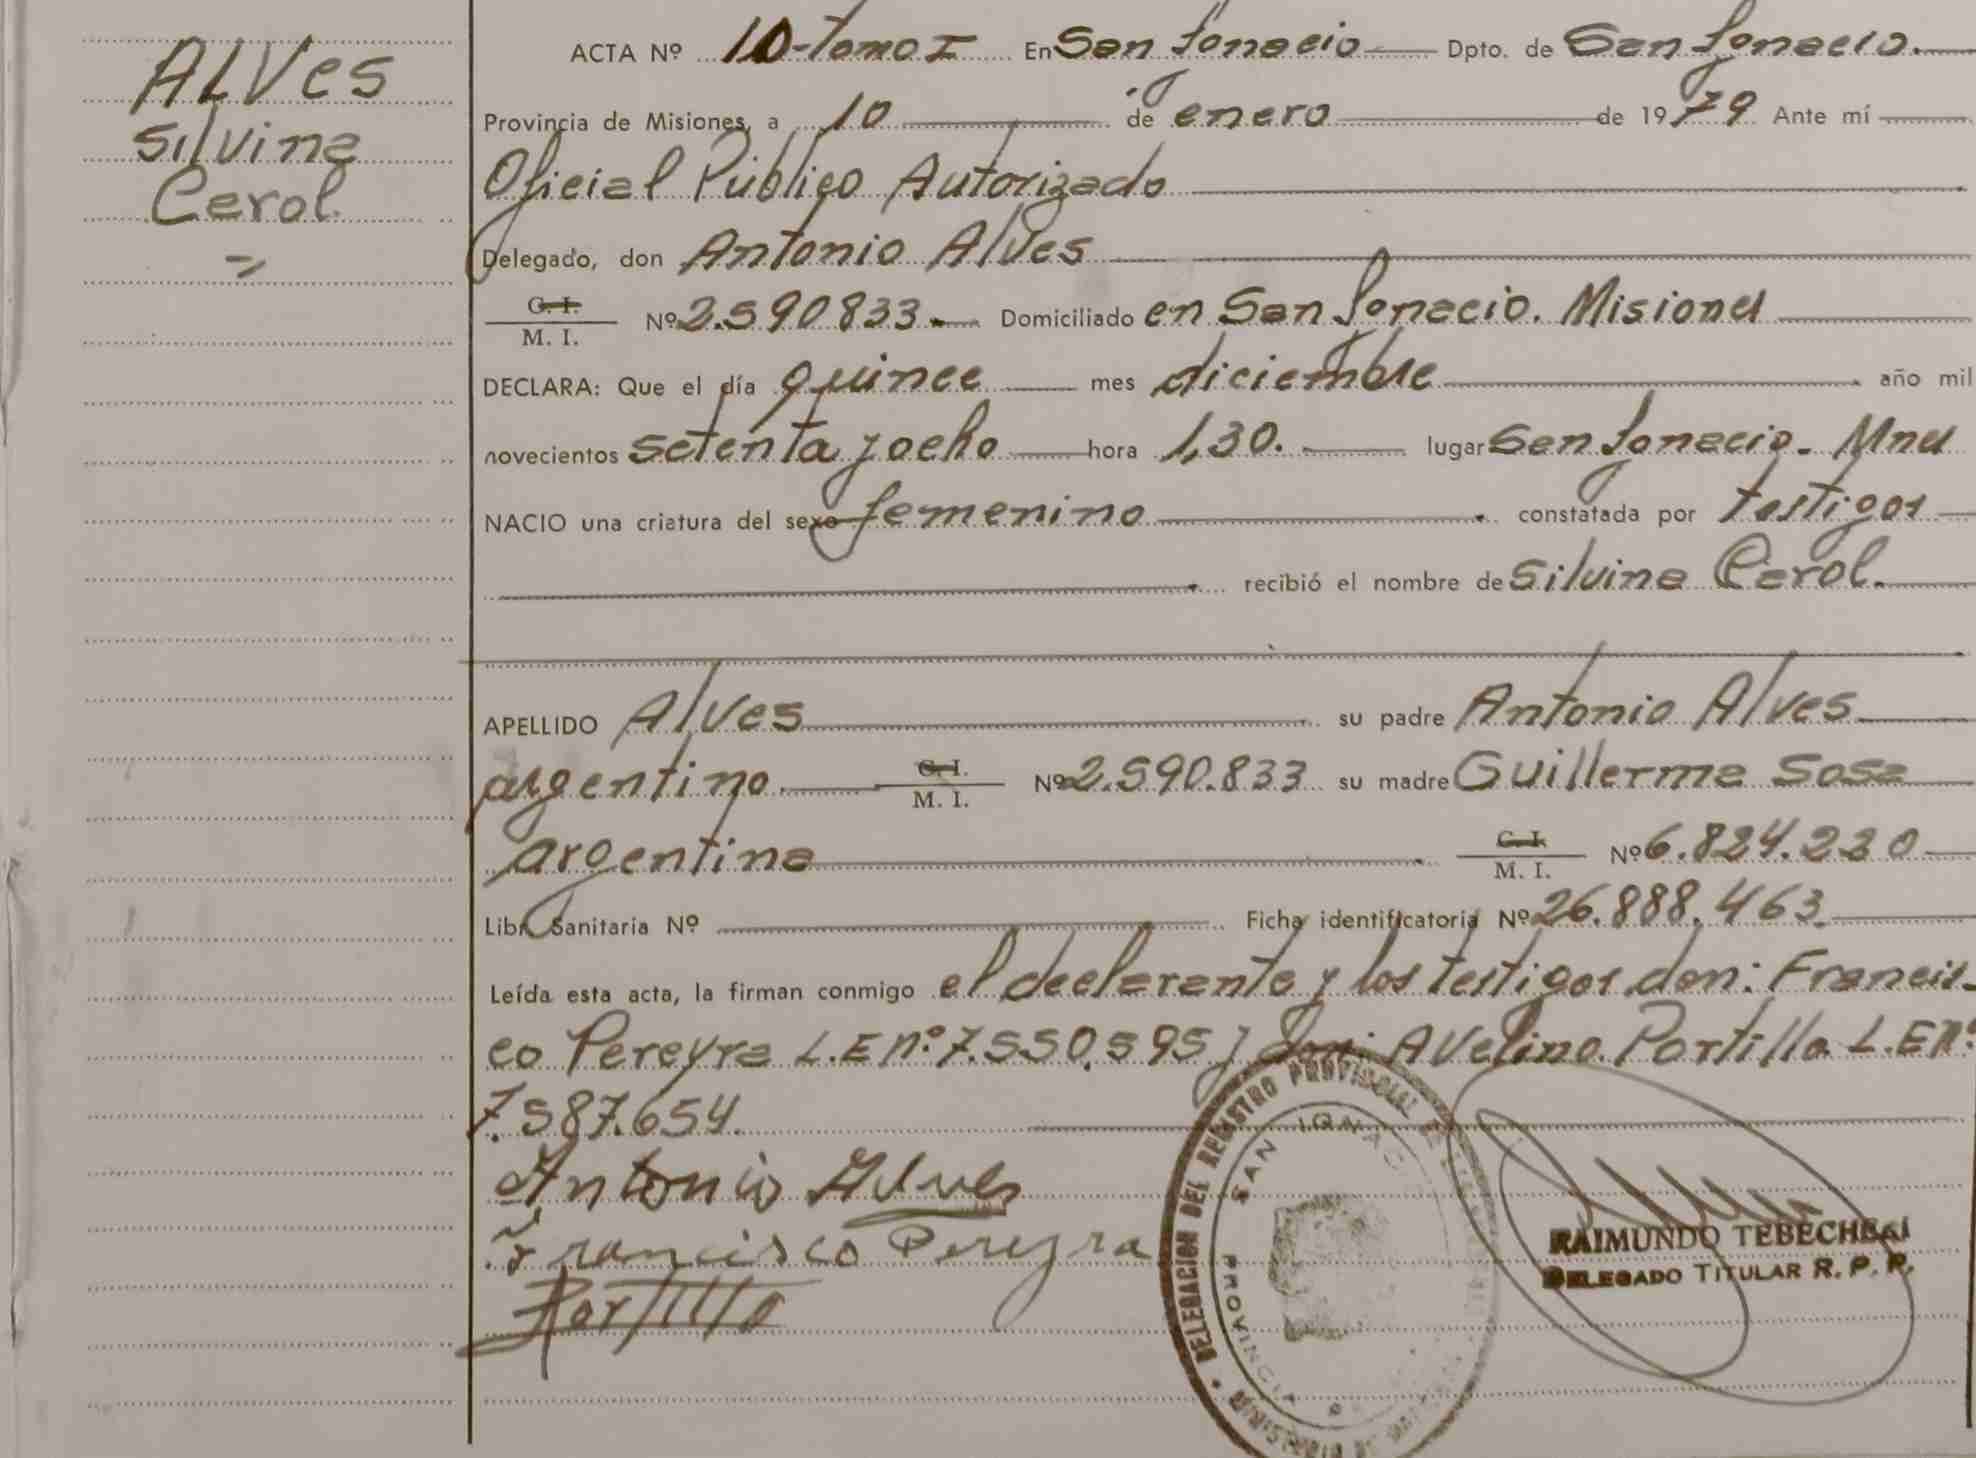 ALVes
Silvina
Cerol.
ACTA Nº 10-Tomo I En San Ignacio Dpto. de San Ignacio.
Provincia de Misiones, a 10 de enero de 1979 Ante mí
Oficial Público Autorizado
Delegado, don Antonio Alves
C. I.
M. I. Nº 2.590833.- Domiciliado en San Ignacio. Misiones
DECLARA: Que el día quince mes diciembre año mil
novecientos setenta y ocho hora 1,30. lugar San Ignacio. Mnes
NACIO una criatura del sexo femenino constatada por testigos
recibió el nombre de Silvina Cerol.
APELLIDO Alves su padre Antonio Alves
argentino. C. I.
M. I. Nº 2.590.833 su madre Guillerma Sosa
argentina C. I.
M. I. Nº 6.824.220
Libr. Sanitaria Nº Ficha identificatoria Nº 26.888.463
Leída esta acta, la firman conmigo el declarante y los testigos don: Francis-
co Pereyra L.E nº: 7.550.595 y don: Avelino Portillo L.E Nº
7.587.654.
Antonio Alves
Francisco Pereyra
Portillo
DELEGACION DEL REGISTRO PROVINCIAL DE
SAN IGNAC
PROVINCIA
RAIMUNDO TEBECHERAI
DELEGADO TITULAR R. P. P.